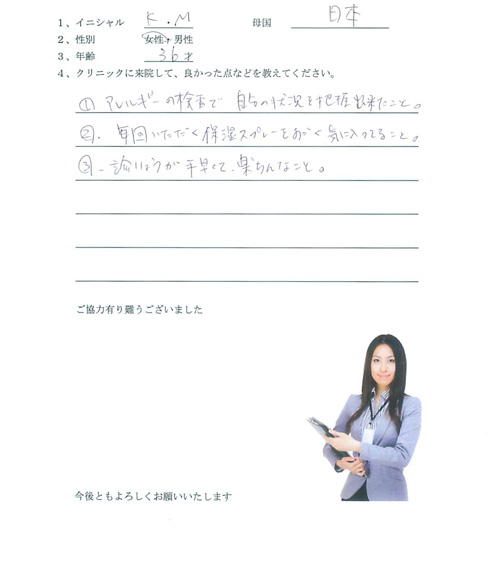 1、イニシャル K.M 母国 日本
2、性別 女性・男性
3、年齢 36才
4、クリニックに来院して、良かった点などを教えてください。
① アレルギーの検査で 自分の状況を把握出来たこと。
②. 毎回いただく保湿スプレーをすごく気に入ってること。
③. 診りょうが手早くて、楽ちんなこと。
ご協力有り難うございました
今後ともよろしくお願いいたします